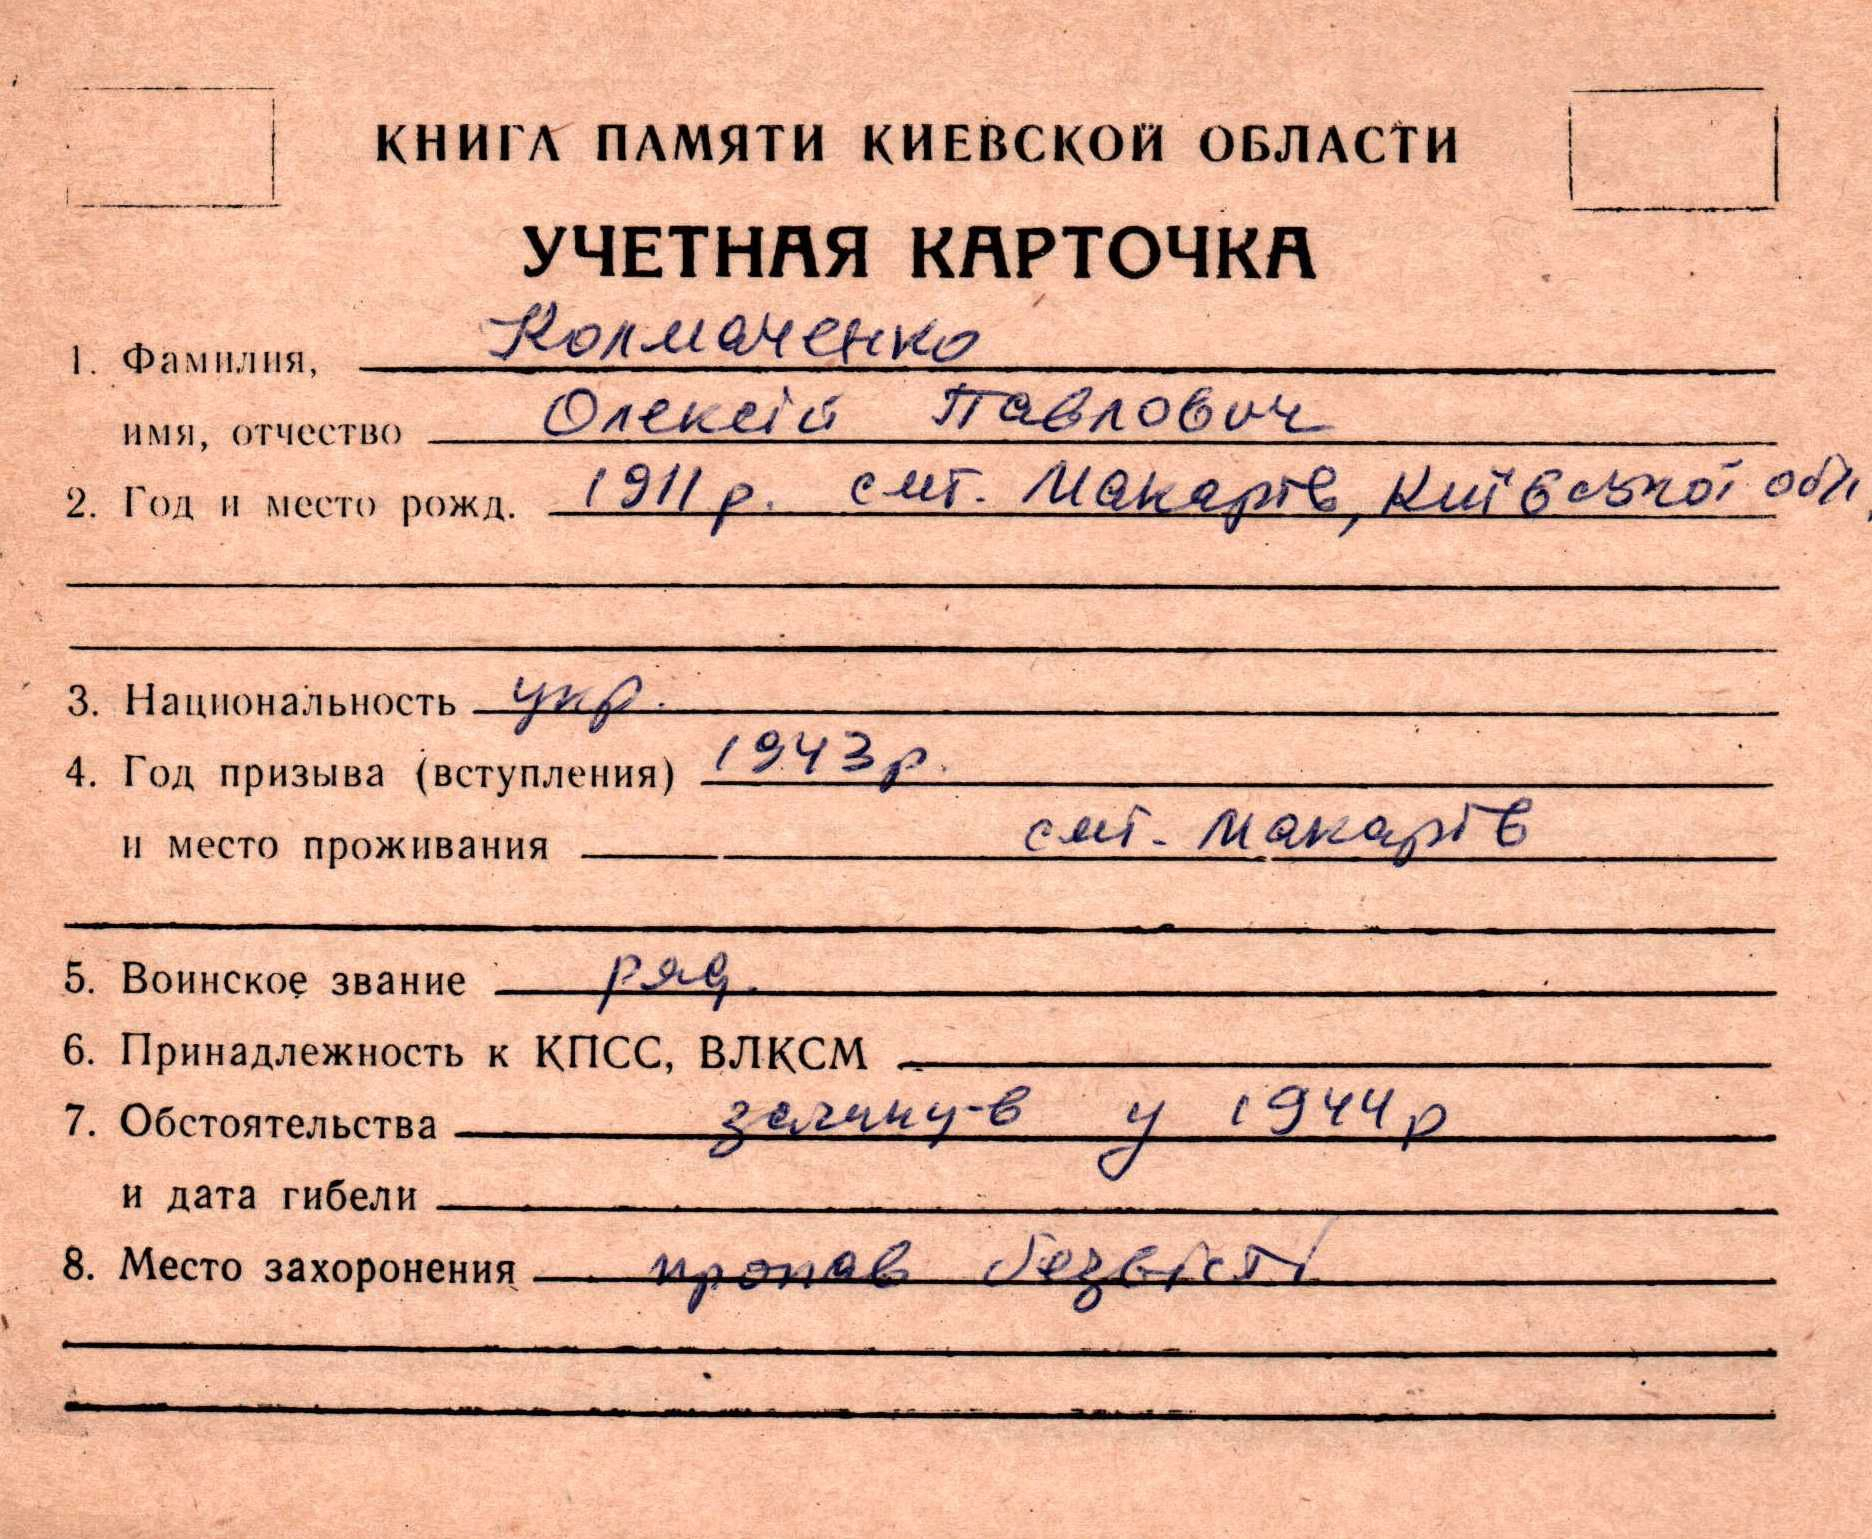 КНИГА ПАМЯТИ КИЕВСКОЙ ОБЛАСТИ
УЧЕТНАЯ КАРТОЧКА
1. Фамилия, Колмаченко
имя, отчество Олексій Павлович
2. Год и место рожд. 1911 р. смт. Макарів, Київської обл.
3. Национальность укр.
4. Год призыва (вступления) 1943 р.
и место проживания смт. Макарів
5. Воинское звание ряд.
6. Принадлежность к КПСС, ВЛКСМ
7. Обстоятельства загину-в у 1944 р
и дата гибели
8. Место захоронения пропав безвісті